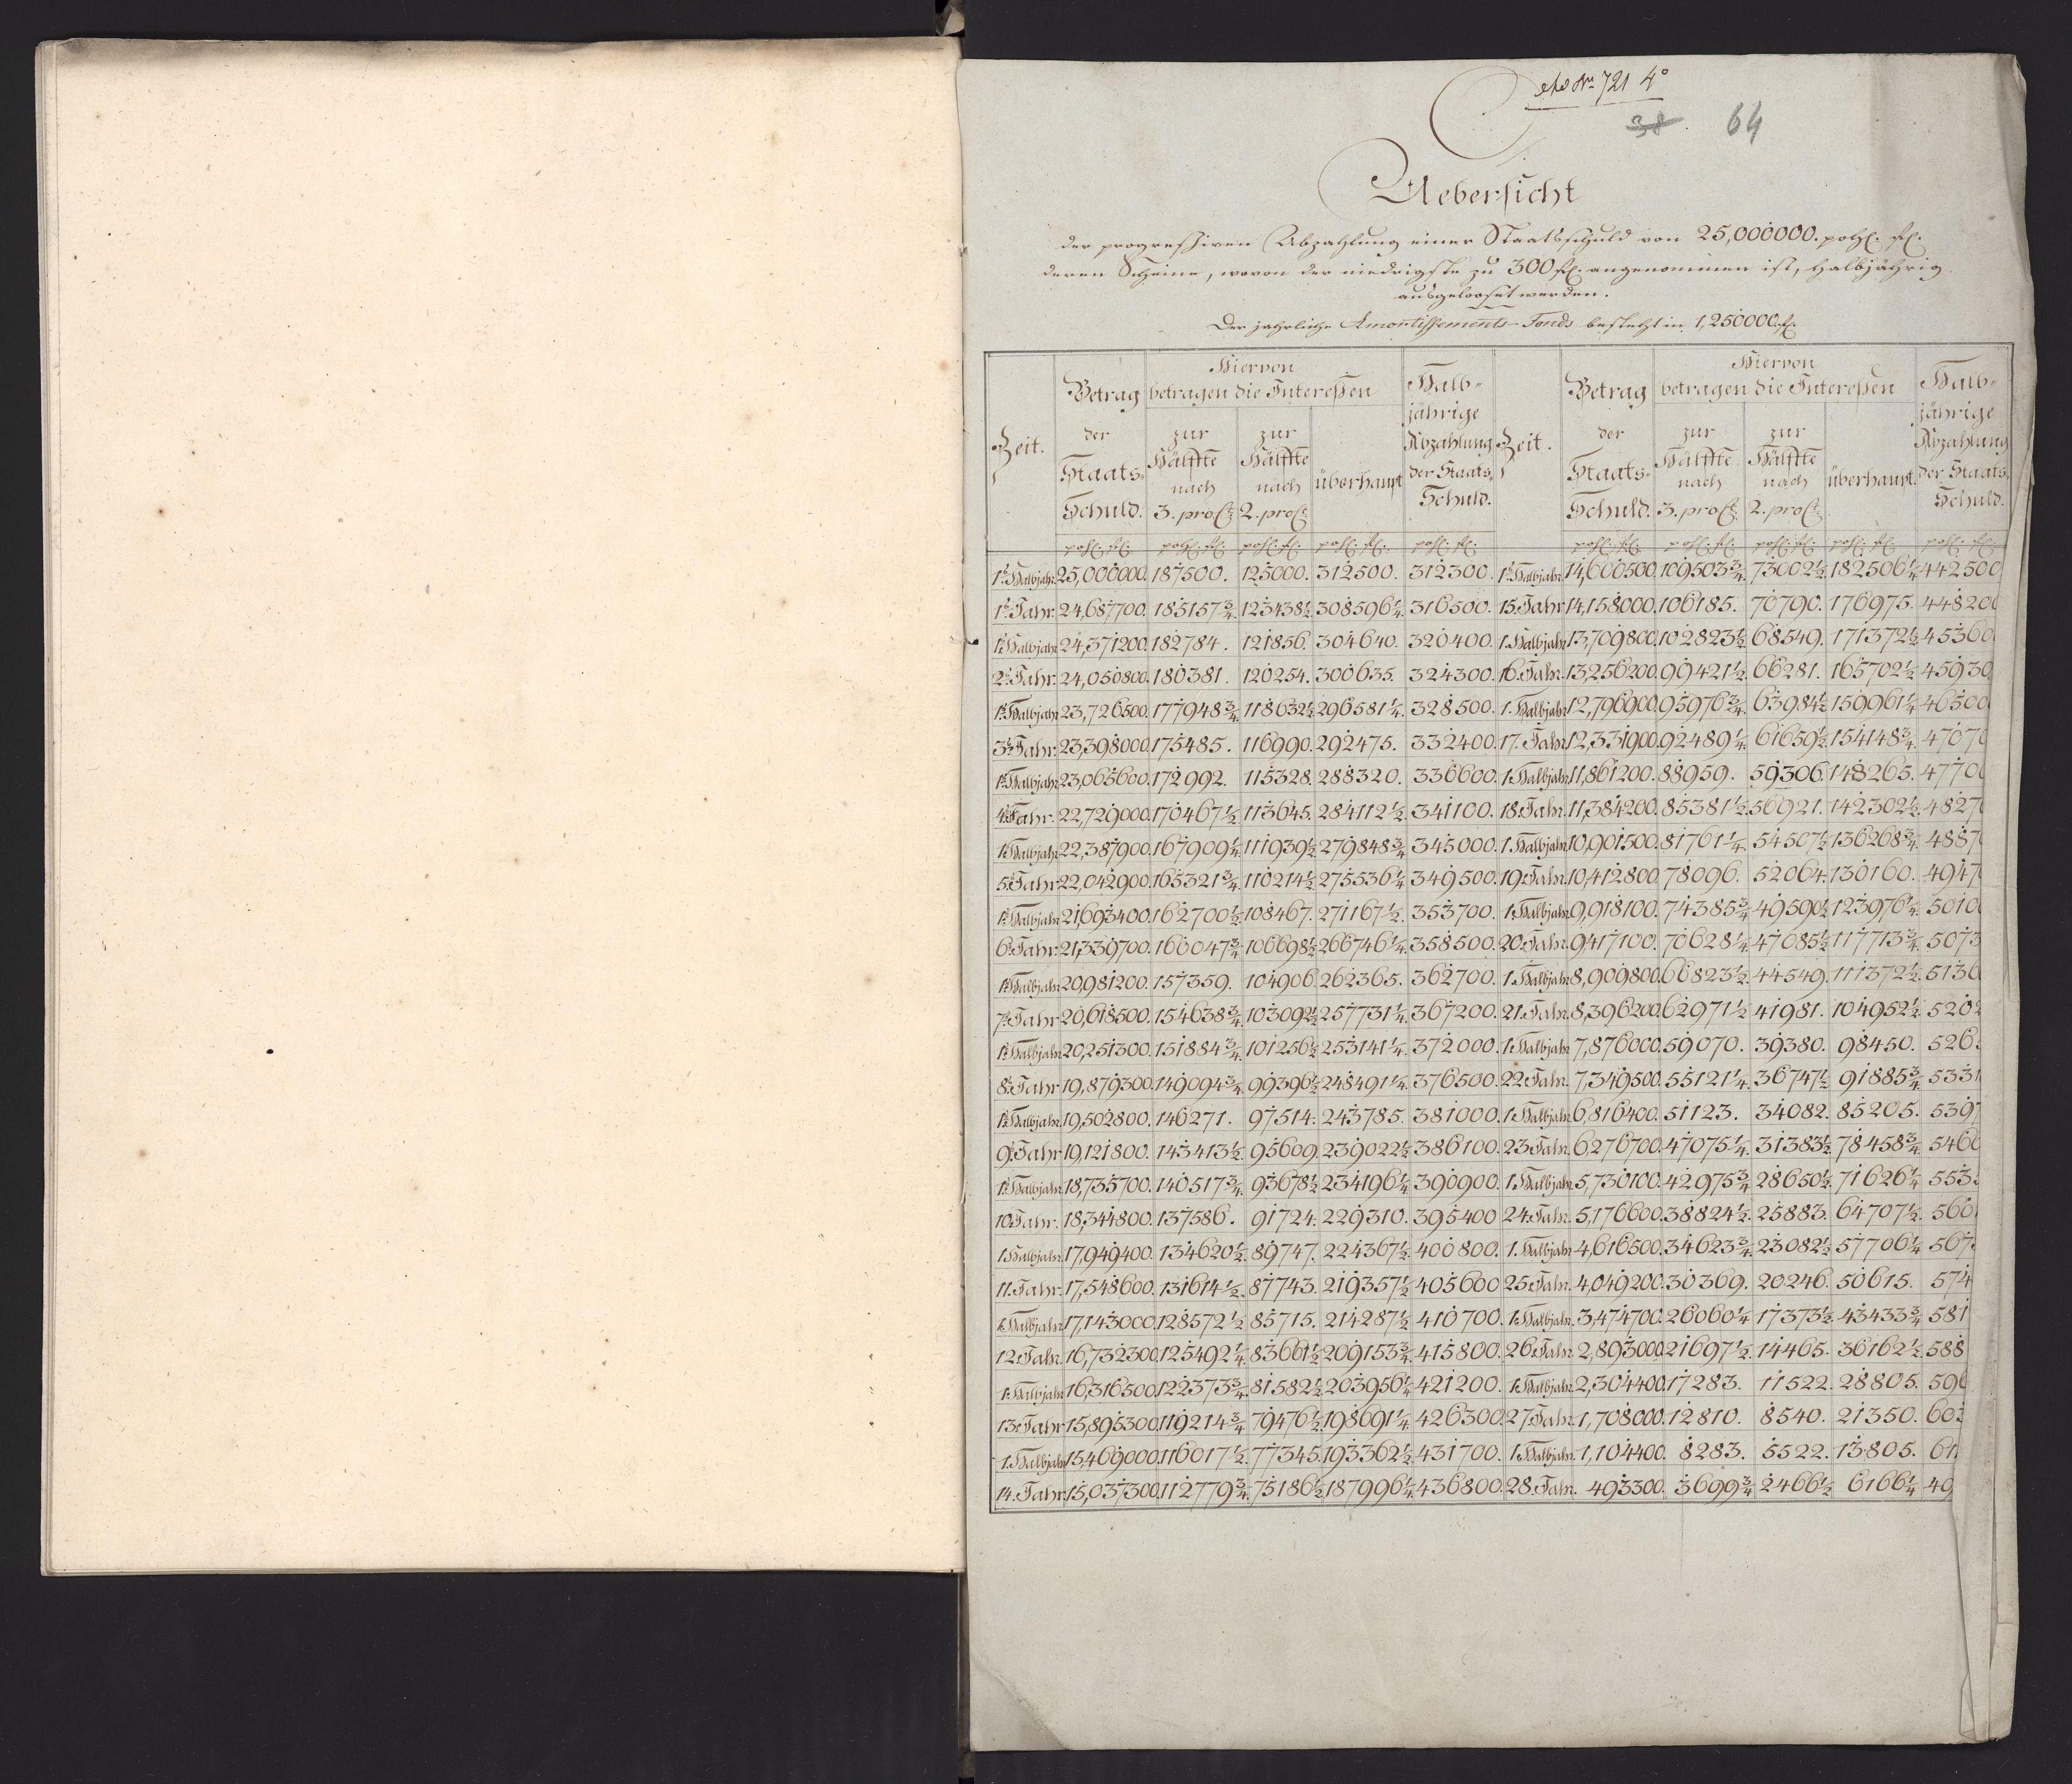 ad No 721 4°
38. 64
Uebersicht
der progressiven Abzahlung einer Staatsschuld von 25,000000. pohl. fl.
deren Scheine, wovon der niedrigste zu 300 fl. angenommen ist, halbjährig
ausgelooset werden.
Der jährliche Amortissements-Fonds besteht in 1,250000 fl.
Zeit. Betrag der Staats-Schuld. Hiervon betragen die Interessen zur Hälffte nach 3. proCt zur Hälffte nach 2. proCt überhaupt Halb-jährige Abzahlung der Staats-Schuld. Zeit. Betrag der Staats-Schuld. Hiervon betragen die Interessen zur Hälffte nach 3. proCt zur Hälffte nach 2. proCt überhaupt. Halb-jährige Abzahlung der Staats-Schuld.
pohl. fl. pohl. fl. pohl. fl. pohl. fl. pohl. fl. pohl. fl. pohl. fl. pohl. fl. pohl. fl. pohl. fl.
1t Halbjahr 25,000000. 187500. 125000. 312500. 312300. 1t Halbjahr 14,600500. 109503¾. 73002½. 182506¼ 442500
1t Jahr. 24,687700. 185157¾ 123438½ 308596¼. 316500. 15. Jahr 14,158000. 106185. 70790. 176975. 44820
1t Halbjahr 24,371200. 182784. 121856. 304640. 320400. 1. Halbjahr 13,709800. 102823½ 68549. 171372½ 45360
2t Jahr. 24,050800. 180381. 120254. 300635. 324300. 16. Jahr. 13,256200. 99421½ 66281. 165702½ 45930
1t Halbjahr 23,726500. 177948¾. 118632½ 296581¼. 328500. 1. Halbjahr 12,796900. 95976¾. 63984½ 159961¼ 46500
3t Jahr. 23,398000. 175485. 116990. 292475. 332400. 17. Jahr 12,331900. 92489¼. 61659½ 154148¾. 4707
1t Halbjahr 23,065600. 172992. 115328. 288320. 336600. 1. Halbjahr 11,861200. 88959. 59306. 148265. 4770
4t Jahr. 22,729000. 170467½ 113645. 284112½. 341100. 18. Jahr. 11,384200. 85381½. 56921. 142302½ 4827
1t Halbjahr 22,387900. 167909¼ 111939½ 279848¾ 345000. 1. Halbjahr 10,901500. 81761¼. 54507½ 136268¾. 4887
5t Jahr 22,042900. 165321¾. 110214½ 275536¼ 349500. 19. Jahr. 10,412800. 78096. 52064. 130160. 4947
1t Halbjahr 21,693400. 162700½ 108467. 271167½. 353700. 1. Halbjahr 9,918100. 74385¾ 49590½ 123976¼. 5010
6t Jahr. 21,339700. 160047¾ 106698½ 266746¼. 358500. 20. Jahr. 9,417100. 70628¼. 47085½ 117713¾. 5073
1t Halbjahr 20,981200. 157359. 104906. 262365. 362700. 1. Halbjahr 8,909800. 66823½ 44549. 111372½. 5136
7t Jahr 20,618500. 154638¾. 103092½ 257731¼. 367200. 21. Jahr. 8,396200. 62971½ 41981. 104952½. 520
1t Halbjahr 20,251300. 151884¾. 101256½ 253141¼. 372000. 1. Halbjahr 7,876000. 59070. 39380. 98450. 526
8t Jahr 19,879300. 149094¾. 99396½ 248491¼. 376500. 22. Jahr. 7,349500. 55121¼. 36747½ 91885¾. 533
1t Halbjahr. 19,502800. 146271. 97514. 243785. 381000. 1. Halbjahr 6,816400. 51123. 34082. 85205. 5397
9t Jahr 19,121800. 143413½. 95609. 239022½ 386100. 23. Jahr. 6,276700. 47075¼. 31383½ 78458¾. 5460
1t Halbjahr. 18,735700. 140517¾. 93678½ 234196¼. 390900. 1. Halbjahr 5,730100. 42975¾ 28650½. 71626¼ 553
10. Jahr. 18,344800. 137586. 91724. 229310. 395400 24. Jahr. 5,176600. 38824½. 25883. 64707½. 560
1. Halbjahr. 17,949400. 134620½. 89747. 224367½. 400800. 1. Halbjahr 4,616500. 34623¾ 23082½ 57706¼ 567
11. Jahr. 17,548600. 131614½. 87743. 219357½ 405600 25. Jahr. 4,049200. 30369. 20246. 50615. 574
1. Halbjahr 17,143000. 128572½ 85715. 214287½ 410700. 1. Halbjahr. 3,474700. 26060¼ 17373½. 43433¾ 581
12. Jahr. 16,732300. 125492¼. 83661½ 209153¾. 415800. 26. Jahr. 2,893000. 21697½. 14465. 36162½. 588
1. Halbjahr 16,316500. 122373¾. 81582½ 203956¼ 421200. 1. Halbjahr. 2,304400. 17283. 11522. 28805. 59
13. Jahr 15,895300. 119214¾ 79476½ 198691¼. 426300. 27. Jahr. 1,708000. 12810. 8540. 21350. 60
1. Halbjahr 15,469000. 116017½. 77345. 193362½. 431700. 1. Halbjahr. 1,104400. 8283. 5522. 13805. 61
14. Jahr. 15,037300. 112779¾. 75186½ 187996¼. 436800. 28. Jahr. 493300. 3699¾ 2466½ 6166¼ 49